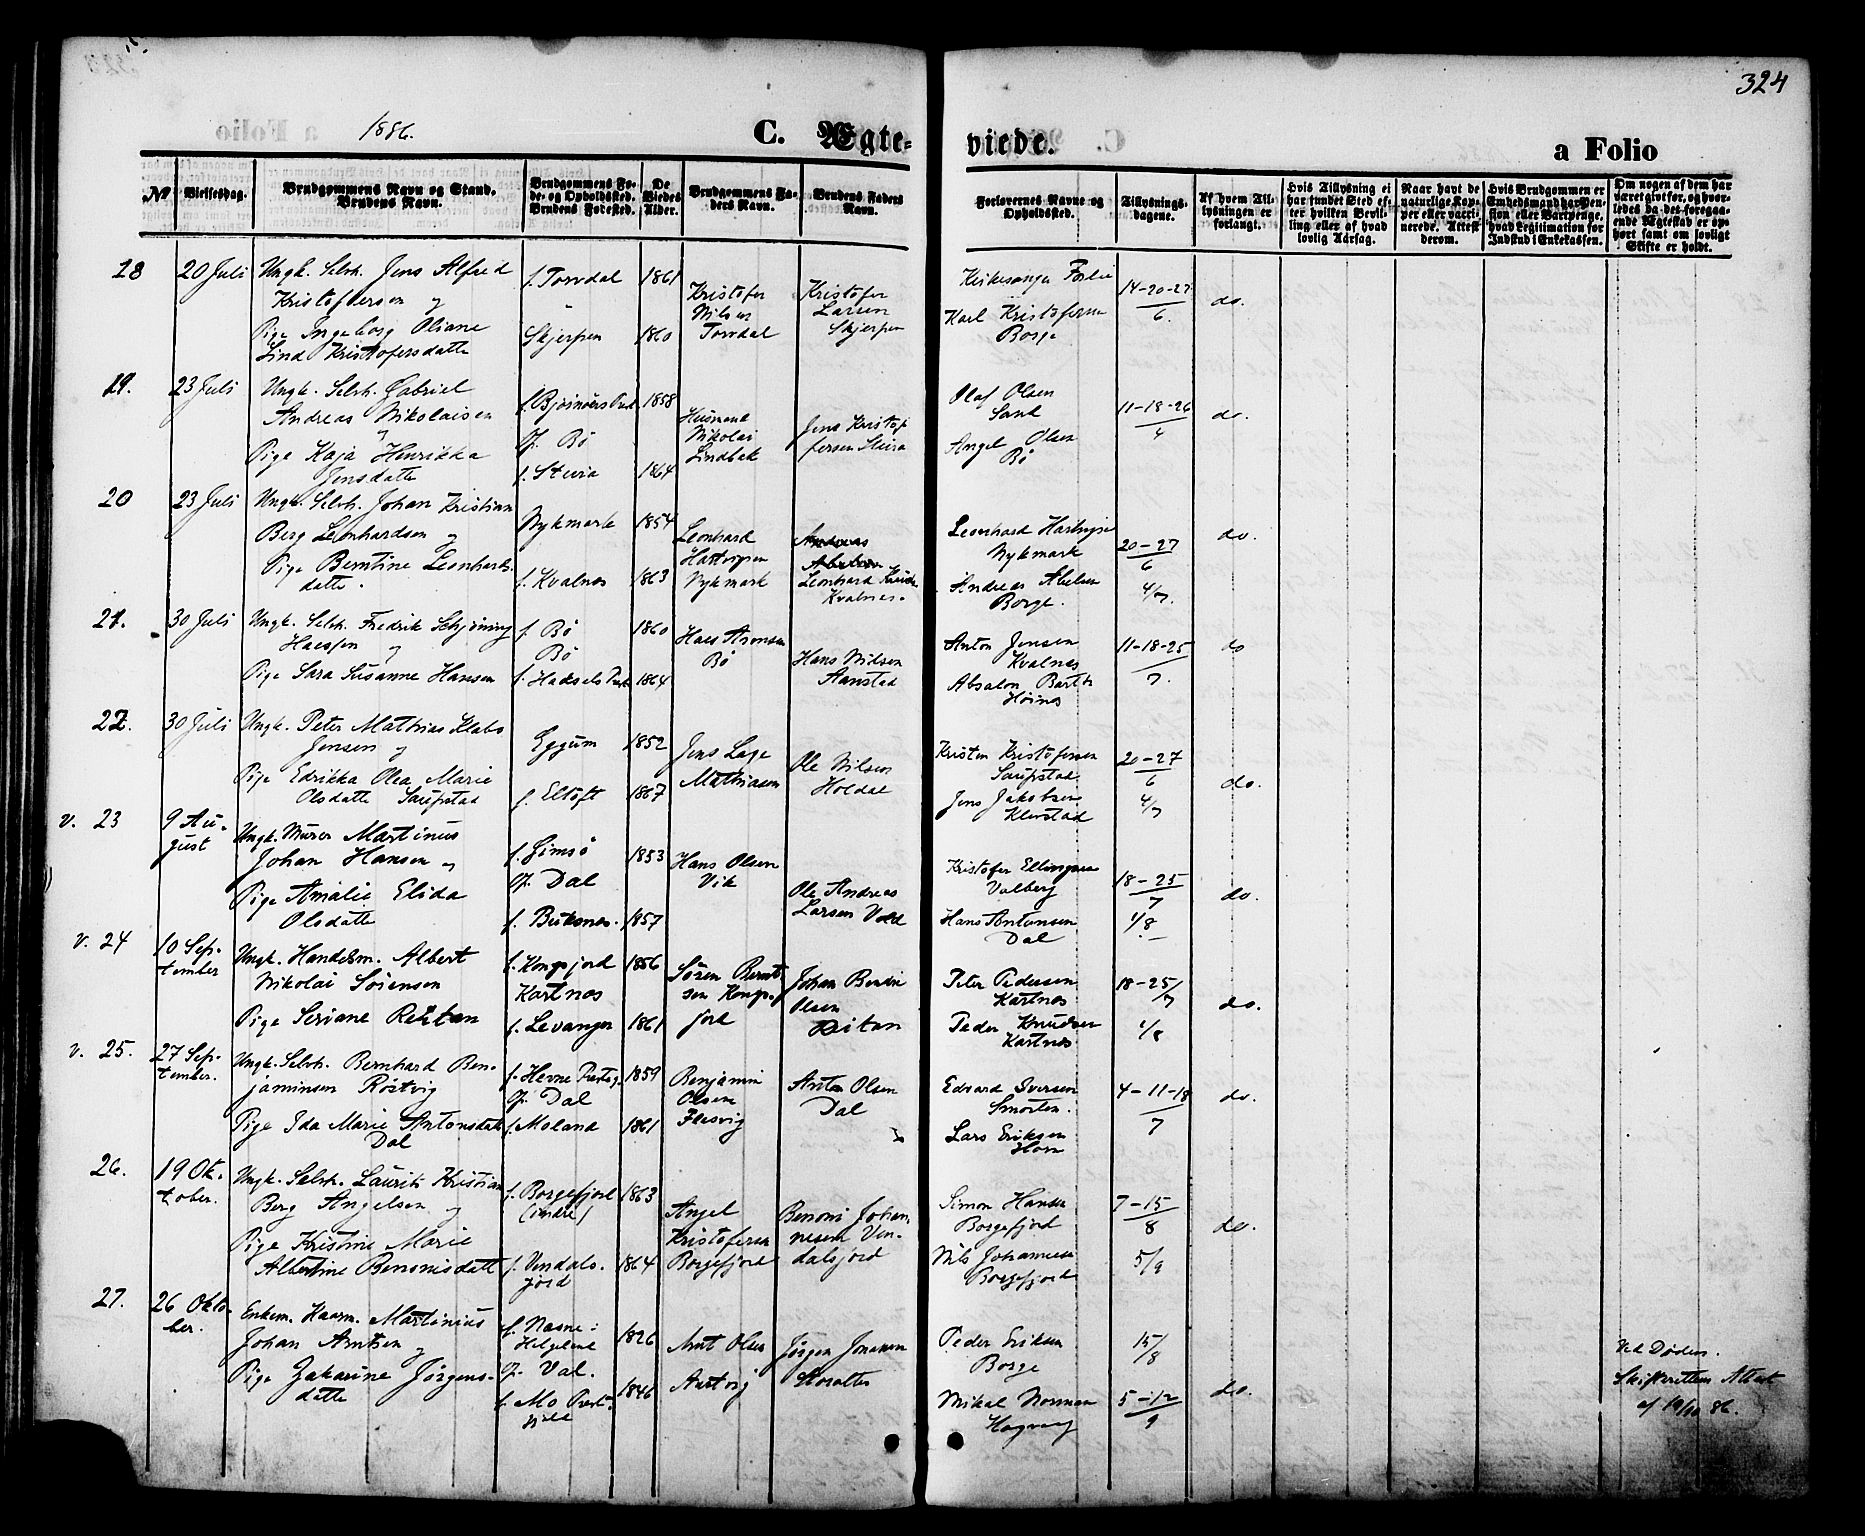 324
1886.
C. Ægte-
viede.
a Folio
№
Vielsesdag.
Brudgommens Navn og Stand.
Brudens Navn.
Brudgommens Fø-
de- og Opholdssted.
Brudens Fødested.
De
Viedes
Alder.
Brudgommens Fa-
ders Navn.
Brudens Faders
Navn.
Forlovernes Navne og
Opholdssted.
Tillysnings-
dagene.
Af hvem Til-
lysningen er
forlangt.
Hvis Tillysning ei
har fundet Sted ef-
ter hvilken Bevil-
ling eller af hvad
lovlig Aarsag.
Naar havt de
naturlige Kop-
per eller vacci-
nerede. Attest
derom.
Hvis Brudgommen er
Embedsmand har Pen-
sion eller Vartpenge,
hvad Legitimation for
Indskud i Enkekassen.
Om nogen af dem har
været gift før, og hvor-
ledes da det foregaa-
ende Ægteskab er op-
hørt samt om lovligt
Skifte er holdt.
18
20 Juli
Ungk. Selvh. Jens Alfred
Kristoffersen og
Pige Ingeborg Oliane
Lind Kristofersdatte
f. Torvdal
Skjerpen
1861
1860
Kristofer
Nilsen
Torvdal
Kristofer
Larsen
Skjerpen
Kirkesanger
Karl Kristofersen
Borge
14-20-27
6.
do.
19.
23 Juli
Ungk. Selvh. Gabriel
Andreas Nikolaisen
og
Pige Kaja Henrikka
Jensdatte
Op. Bø
f. Steira
1858
1864
Husmand
Nikolai
Lindbak
Jens Kristof-
fersen Steira
Olaf Olsen
Sand
Angel Olsen
Bø
11-18-26
4
do.
20
23 Juli
Ungk. Selvh. Johan Kristian
Berg Leonhardsen og
Pige Berntine Leonhards-
datte.
Nykmark
f. Kvalnes
1854
1863
Leonhard
Hartvigsen
Nykmark
Andreas
Abelsen
Leonhard
Kvalnes.
Leonhard Hartvigsen
Nykmark
Andreas Abelsen
Borge.
20-27
6
4/7.
do.
21.
30 Juli
Ungk. Selvh. Fredrik Schjöning
Haessen og
Pige Sara Susanne Hansen
f. Bø
Bø
f. Hadsels Præst
1860
1864
Haes Aronsen
Bø
Hans Nilsen
Aanstad
Anton Jensen
Kvalnes
Absalon
Høines
11-18-25
7.
do
22.
30 Juli
Ungk. Peter Mathias Klabo
Jensen og
Pige Edrikka Olea Marie
Olsdatte Saupstad
Eggum
f. Eltoft
1852
1867
Jens Lage
Mathiasen
Ole Nilsen
Holdal
Kristen Kristofersen
Saupstad
Jens Jakobsen
Klevstad
20-27
6
4/7
do.
v. 23
9 Au-
gust
Ungk. Murer Martinus
Johan Hansen og
Pige Amalie Elida
Olsdatte
f. Gimsö
Op. Dal
f. Buksnes.
1853
1857
Hans Olsen
Vik
Ole Andreas
Larsen Vold
Kristofer Ellingsen
Valberg
Hans Antonsen
Dal
18-25
7
1/8
do.
v. 24
10 Sep-
tember
Ungk. Handelsm. Albert
Nikolai Sörensen
Pige Seriane Reitan
f. Kongsfjord
Kartnes
f. Levanger
1856
1861
Sören Bernt-
sen Kongs-
fjord
Johan
Olsen
Reitan
Peter Pedersen
Kartnes
Peder Knudsen
Kartnes
18-25/7
1/8
do.
v. 25.
27 Sep-
tember.
Ungk. Selvh. Bernhard Ben-
jaminsen Röstvig
Pige Ida Marie Antonsdatte
Dal
f. Hevne Præstg.
Op. Dal
f. Moland
1859
1861
Benjamin
Olsen
Flesvig
Anton Olsen
Dal
Edvard Iversen
Smorten.
Lars Eriksen
Horn
4-11-18
7
do.
26.
19 Ok-
tober.
Ungk. Selvh. Laurits Kristian
Berg Angelsen og
Pige Kristine Marie
Albertine Benonisdatt
f. Borgefjord
(indre)
f. Vendals-
fjord
1863
1864
Angel
Kristofersen
Borgefjord
Benoni Johan-
nesen Ven-
dalsfjord
Simon Hansen
Borgefjord
Nils Johannesen
Borgefjord
7-15
8
5/9
do.
27.
26 Okto-
ber.
Enkem. Haarm. Martinius
Johan Arntsen og
Pige Zakarine Jörgens-
datte
f. Næsne:
Helgeland
Op. Val.
f. Mo Præst-
gjeld
1826
1846
Arnt Olsen
Aartvig
Jörgen Jonassen
Peder Eriksen
Borge
Mikal Norman
15/8
5-12
9
do.
Ved Döden.
Skifterettens Attest
af 19/10 86.